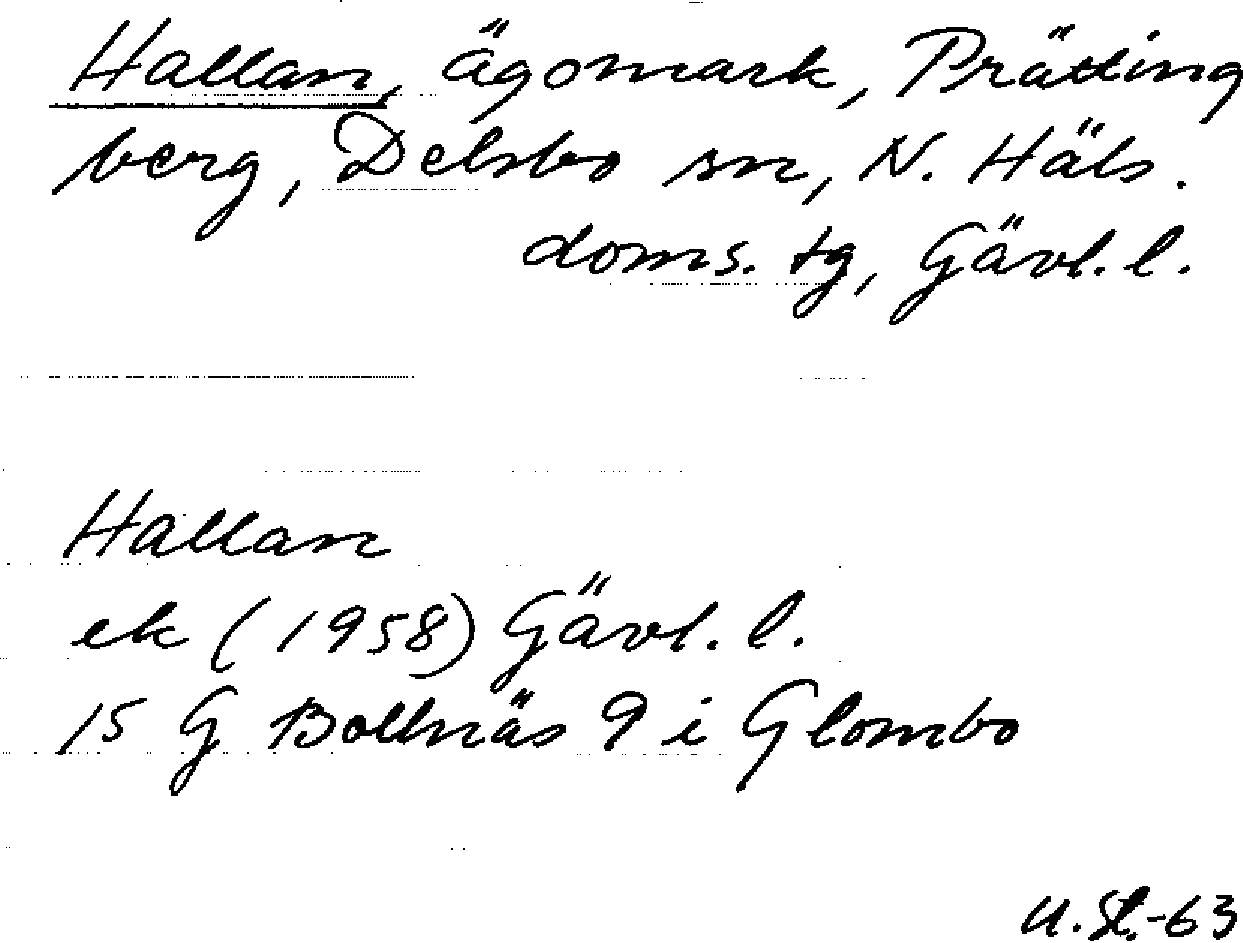 Hallan, ägomark, Prätting
berg, Delsbo sn, N. Häls.
doms. tg, Gävl. l.
Hallan
ek (1958) Gävl. l.
15 G Bollnäs 9 i Glombo
U. St.-63